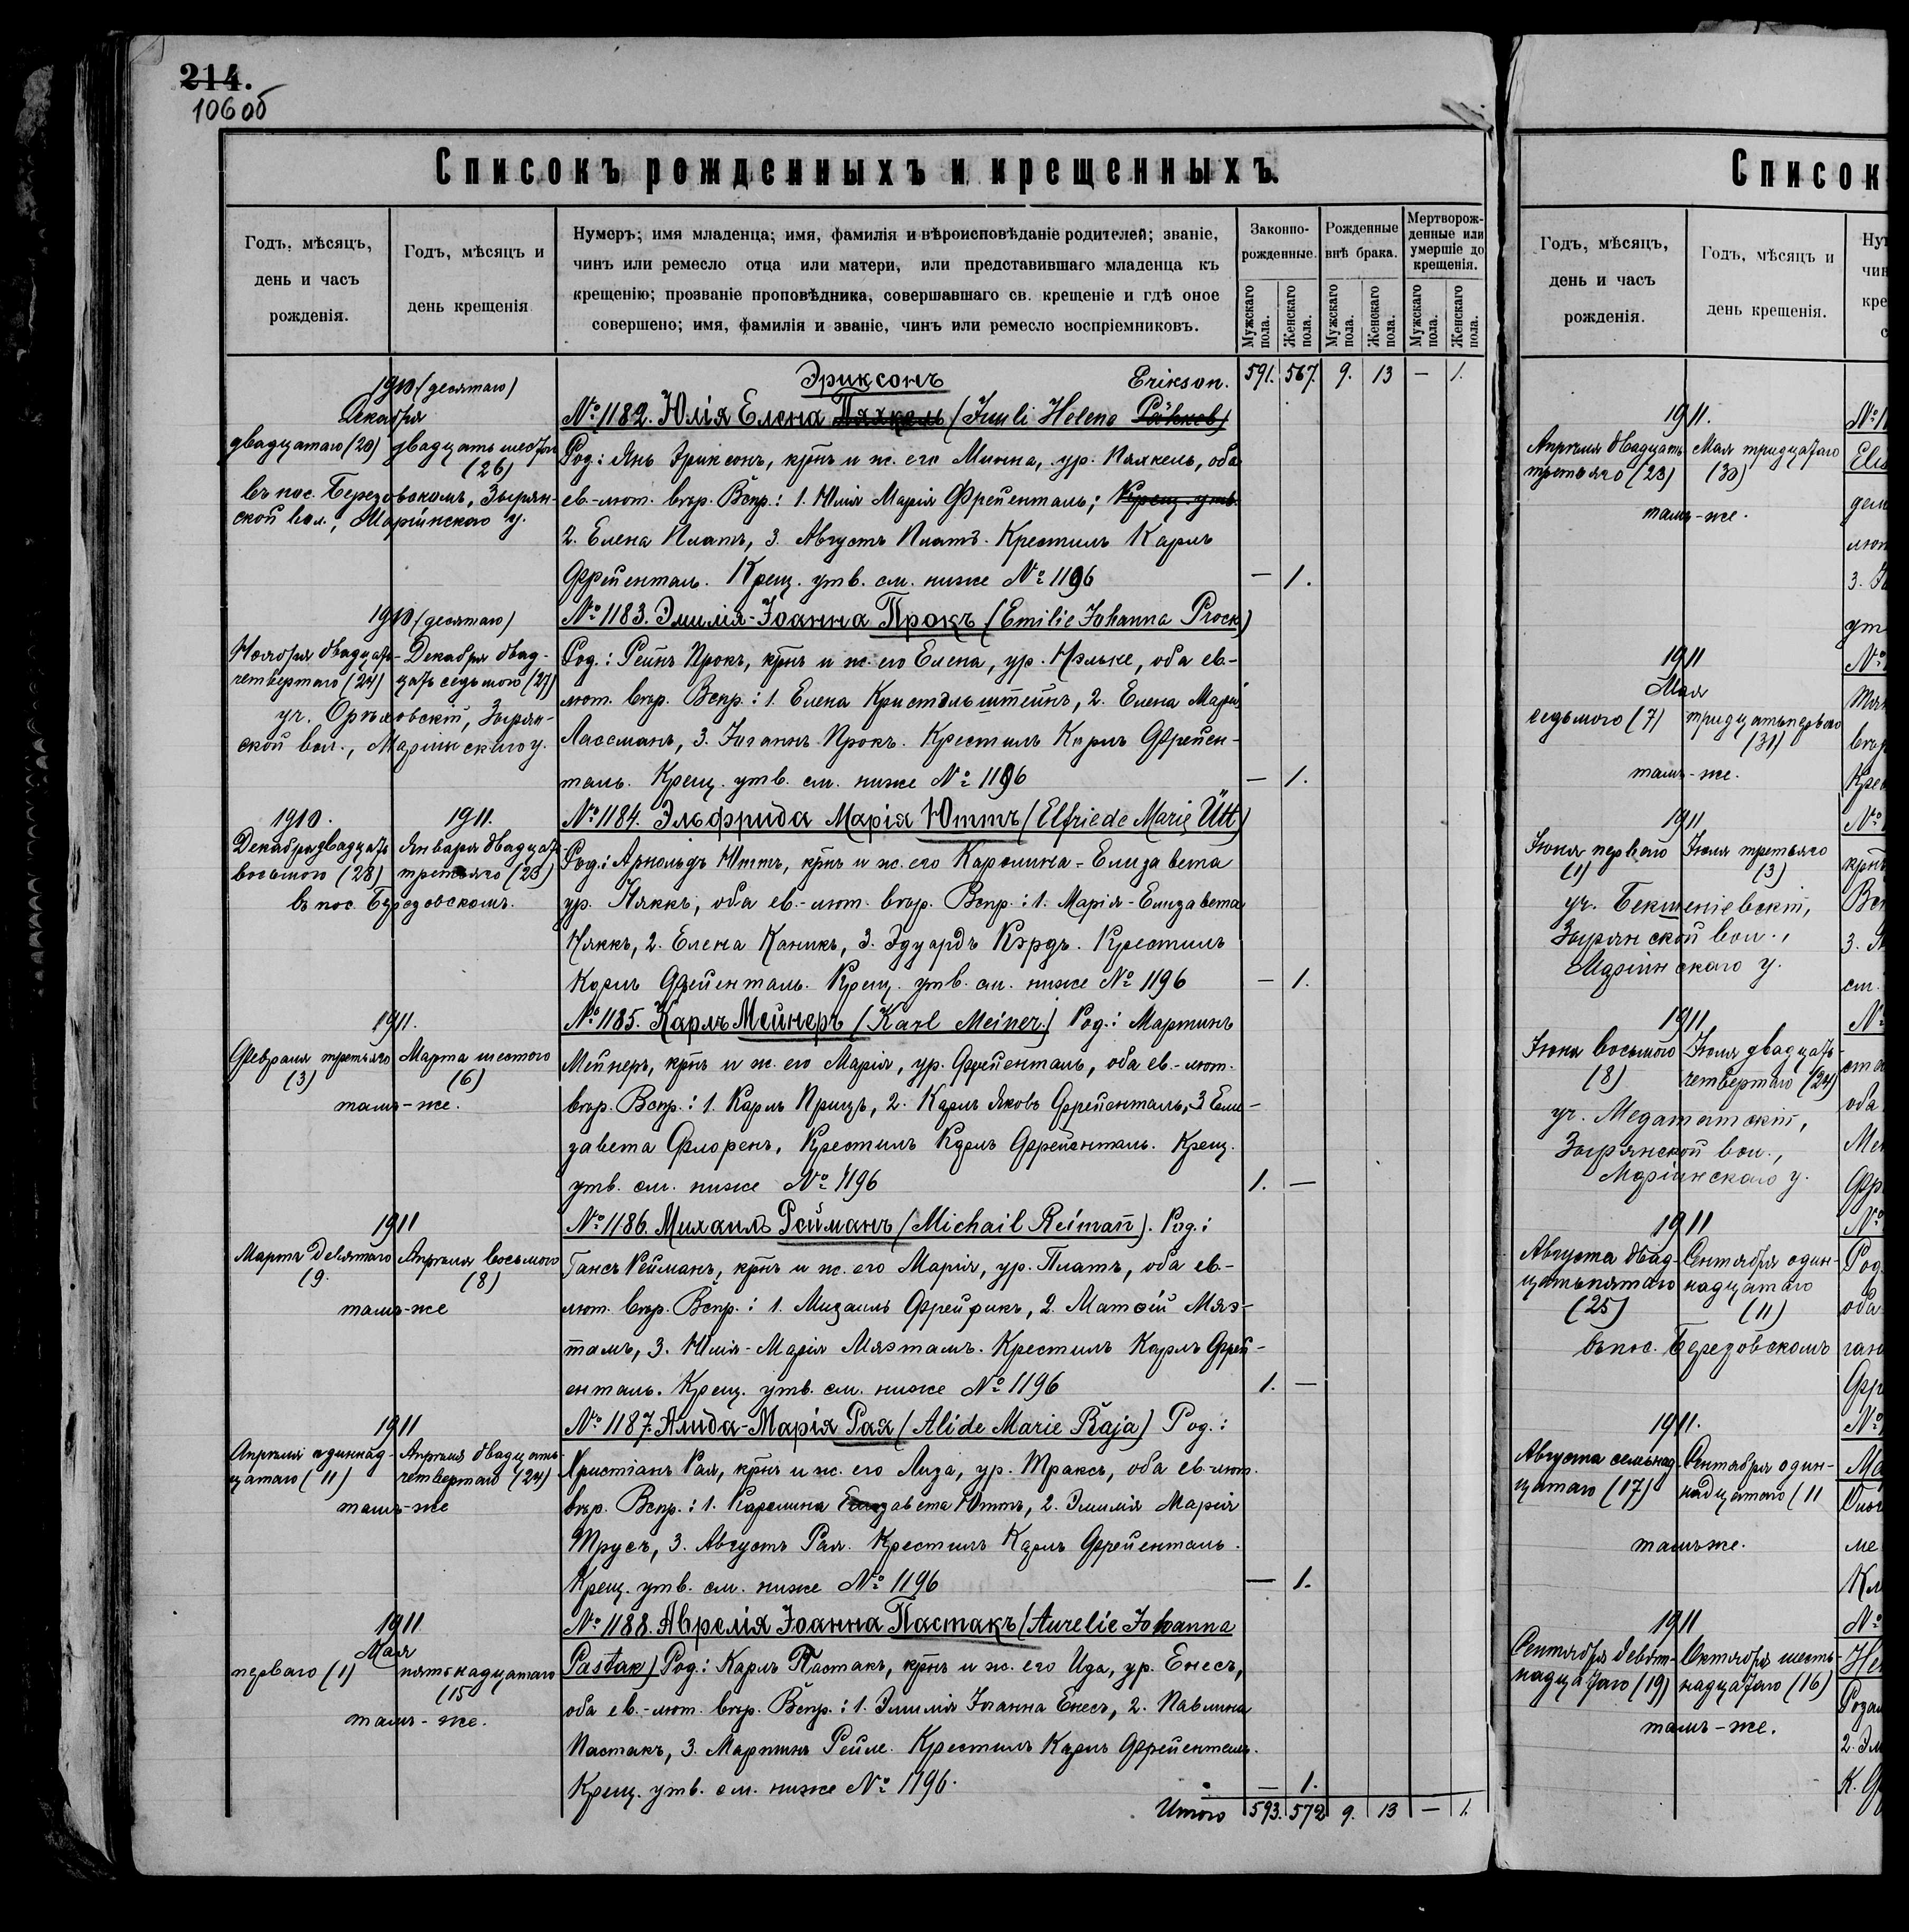 214.
106 об
Списокъ рожденныхъ и крещенныхъ.
Годъ, мѣсяцъ, день и часъ рожденія.
Годъ, мѣсяцъ и день крещенія
Нумеръ; имя младенца; имя, фамилія и вѣроисповѣданіе родителей; званіе,
чинъ или ремесло отца или матери, или представившаго младенца къ
крещенію; прозваніе проповѣдника, совершавшаго св. крещеніе и гдѣ оное
совершено; имя, фамилія и званіе, чинъ или ремесло воспріемниковъ.
Законно-рожденные.
Рожденные внѣ брака.
Мертворож-денные или умершіе до крещенія.
Мужскаго пола.
Женскаго пола.
Мужскаго пола.
Женскаго пола.
Мужскаго пола.
Женскаго пола.
591. 567. 9. 13 — 1.
1910 (десятаго)
Декабря
двадцатаго (20) двадцать шестого
(26)
въ пос. Березовскомъ, Зырян-
ской вол., Маріинскаго у.
Эриксонъ Erikson.
№ 1182. Юлія Елена Пяхкель (Juuli Helene Pähkel)
Род: Янъ Эриксонъ, крнъ и ж. его Минна, ур. Пяхкель, оба
ев.-лют. вѣр. Вспр.: 1. Юлія Марія Фрейенталь; Крещ. утв.
2. Елена Платъ, 3. Августъ Платъ. Крестилъ Карлъ
Фрейенталь. Крещ. утв. см. ниже № 1196 — 1.
1910 (десятаго)
Ноября двадцать- Декабря двад-
четвертаго (24) цать седьмого (27)
уч. Орѣховскій, Зырян-
ской вол., Маріинскаго у.
№ 1183. Эмилія-Іоанна Прокъ (Emilie Johanna Prock)
Род.: Рейнъ Прокъ, крнъ и ж. его Елена, ур. Нэльке, оба ев-
лют. вѣр. Вспр.: 1. Елена Кристальштейнъ, 2. Елена Марі
Лассманъ, 3. Іоганнъ Прокъ. Крестилъ Карлъ Фрейен-
таль. Крещ. утв. см. ниже № 1196 — 1.
1910. 1911.
Декабря двадцать Января двадцать
восьмого (28) третьяго (23)
въ пос. Березовскомъ.
№ 1184. Эльфрида Марія Юттъ (Elfriede Marie Ütt)
Род: Арнольдъ Юттъ, крнъ и ж. его Каролина-Елизавета
ур. Няккъ, оба ев.-лют. вѣр. Вспр.: 1. Марія-Елизавета
Няккъ, 2. Елена Каникъ, 3. Эдуардъ Кэрдъ. Крестилъ
Карлъ Фрейенталь. Крещ. утв. см. ниже № 1196 — 1.
1911.
Февраля третьяго Марта шестого
(3) (6)
тамъ-же.
№ 1185. Карлъ Мейнеръ (Karl Meiner.) Род.: Мартинъ
Мейнеръ, крнъ и ж. его Марія, ур. Фрейенталь, оба ев.-лют.
вѣр. Вспр.: 1. Карлъ Прицъ, 2. Карлъ Яковъ Фрейенталь, 3 Ели-
завета Флоренъ. Крестилъ Карлъ Фрейенталь. Крещ.
утв. см. ниже № 1196 1. —
1911
Марта девятаго Апрѣля восьмого
(9. (8)
тамъ-же
№ 1186. Михаилъ Рейманъ (Michail Reimann). Род.:
Гансъ Рейманъ, крнъ и ж. его Марія, ур. Платъ, оба ев-
лют. вѣр. Вспр.: 1. Михаилъ Фрейфикъ, 2. Матѳій Мяэ-
тамъ, 3. Юлія-Марія Мяэтамъ. Крестилъ Карлъ Фрей-
енталь. Крещ. утв. см. ниже № 1196 1. —
1911
Апрѣля одиннад- Апрѣля двадцать
цатаго (11) четвертаго (24)
тамъ-же
№ 1187. Алида-Марія Рая (Alide Marie Raja) Род.:
Христіанъ Рая, крнъ и ж. его Лиза, ур. Траксъ, оба ев-лют.
вѣр. Вспр.: 1. Каролина Елизавета Юттъ, 2. Эмилія Марія
Трусъ, 3. Августъ Рая. Крестилъ Карлъ Фрейенталь.
Крещ. утв. см. ниже № 1196 — 1.
1911
Мая
перваго (1) пятьнадцатаго
(15
тамъ-же.
№ 1188. Аврелія Іоанна Пастакъ (Aurelie Johanna
Pastak) Род.: Карлъ Пастакъ, крнъ и ж. его Ида, ур. Енесъ,
оба ев.-лют. вѣр. Вспр.: 1. Эмилія Іоанна Енесъ, 2. Павлина
Пастакъ, 3. Мартинъ Рейле. Крестилъ Карлъ Фрейенталь.
Крещ. утв. см. ниже № 1196. — 1.
Итого 593. 572 9. 13 — 1.
Список
Годъ, мѣсяцъ, день и часъ рожденія.
Годъ, мѣсяцъ и день крещенія.
1911.
Апрѣля двадцать Мая тридцатаго
третьяго (23) (30)
тамъ-же.
1911
Мая
седьмого (7) тридцатьперваго
(31)
тамъ-же.
1911
Іюня перваго Іюля третьяго
(1) (3)
уч. Бекшеніевскій,
Зырянской вол.,
Маріинскаго у.
1911
Іюня восьмого Іюля двадцать-
(8) четвертаго (24)
уч. Медататскій,
Зырянской вол.,
Маріинскаго у.
1911
Августа двад- Сентября один-
цатьпятаго надцатаго
(25) (11)
въ пос. Березовскомъ
1911.
Августа семьнад- Сентября один-
цатаго (17) надцатаго (11
тамъже.
1911
Сентября девят- Октября шесть-
надцатаго (19) надцатаго (16)
тамъ-же.